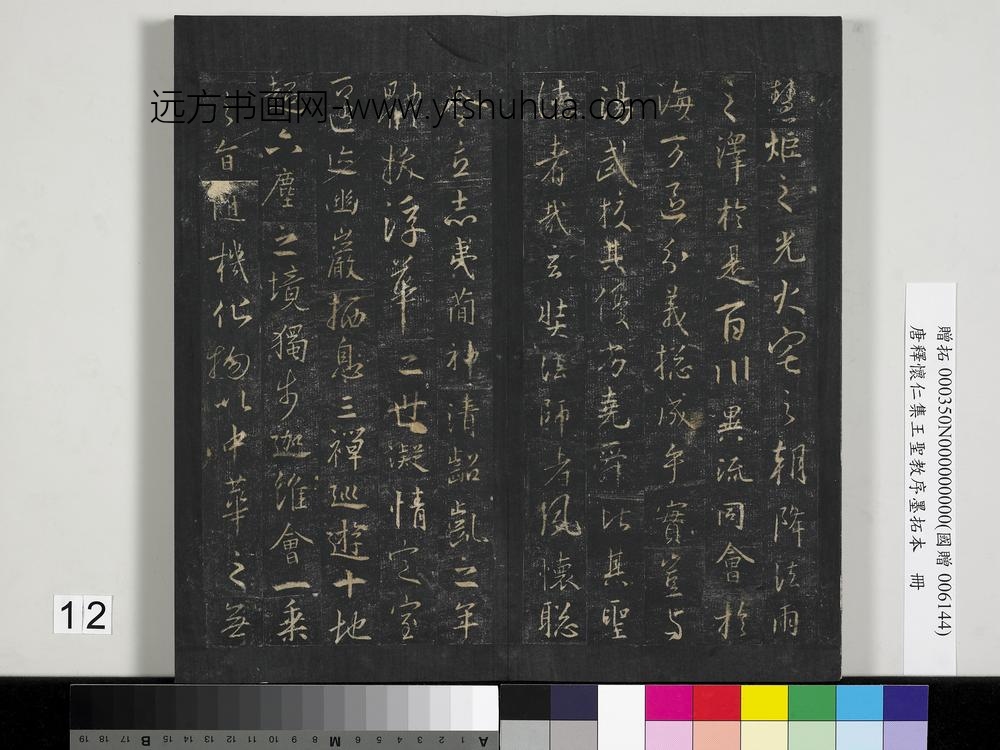 慧炬之光火宅之朝降法雨
之澤於是百川異流同會於
海万區分義総成乎實豈与
湯武校其優劣堯舜比其聖
德者哉玄奘法師者夙懷聡
令立志夷簡神清齠齔之年
體拔浮華之世凝情定室
匿迹幽巖栖息三禪巡遊十地
超六塵之境獨步迦維會一乘
之旨隨機化物以中華之無
远方书画网-www.yfshuhua.com
贈拓 000350N000000000(國贈 006144)
唐釋懷仁集王聖教序墨拓本 冊
12
19 18 17 16 15 14 13 12 11 10 9 8 7 6 5 4 3 2 1
B M A